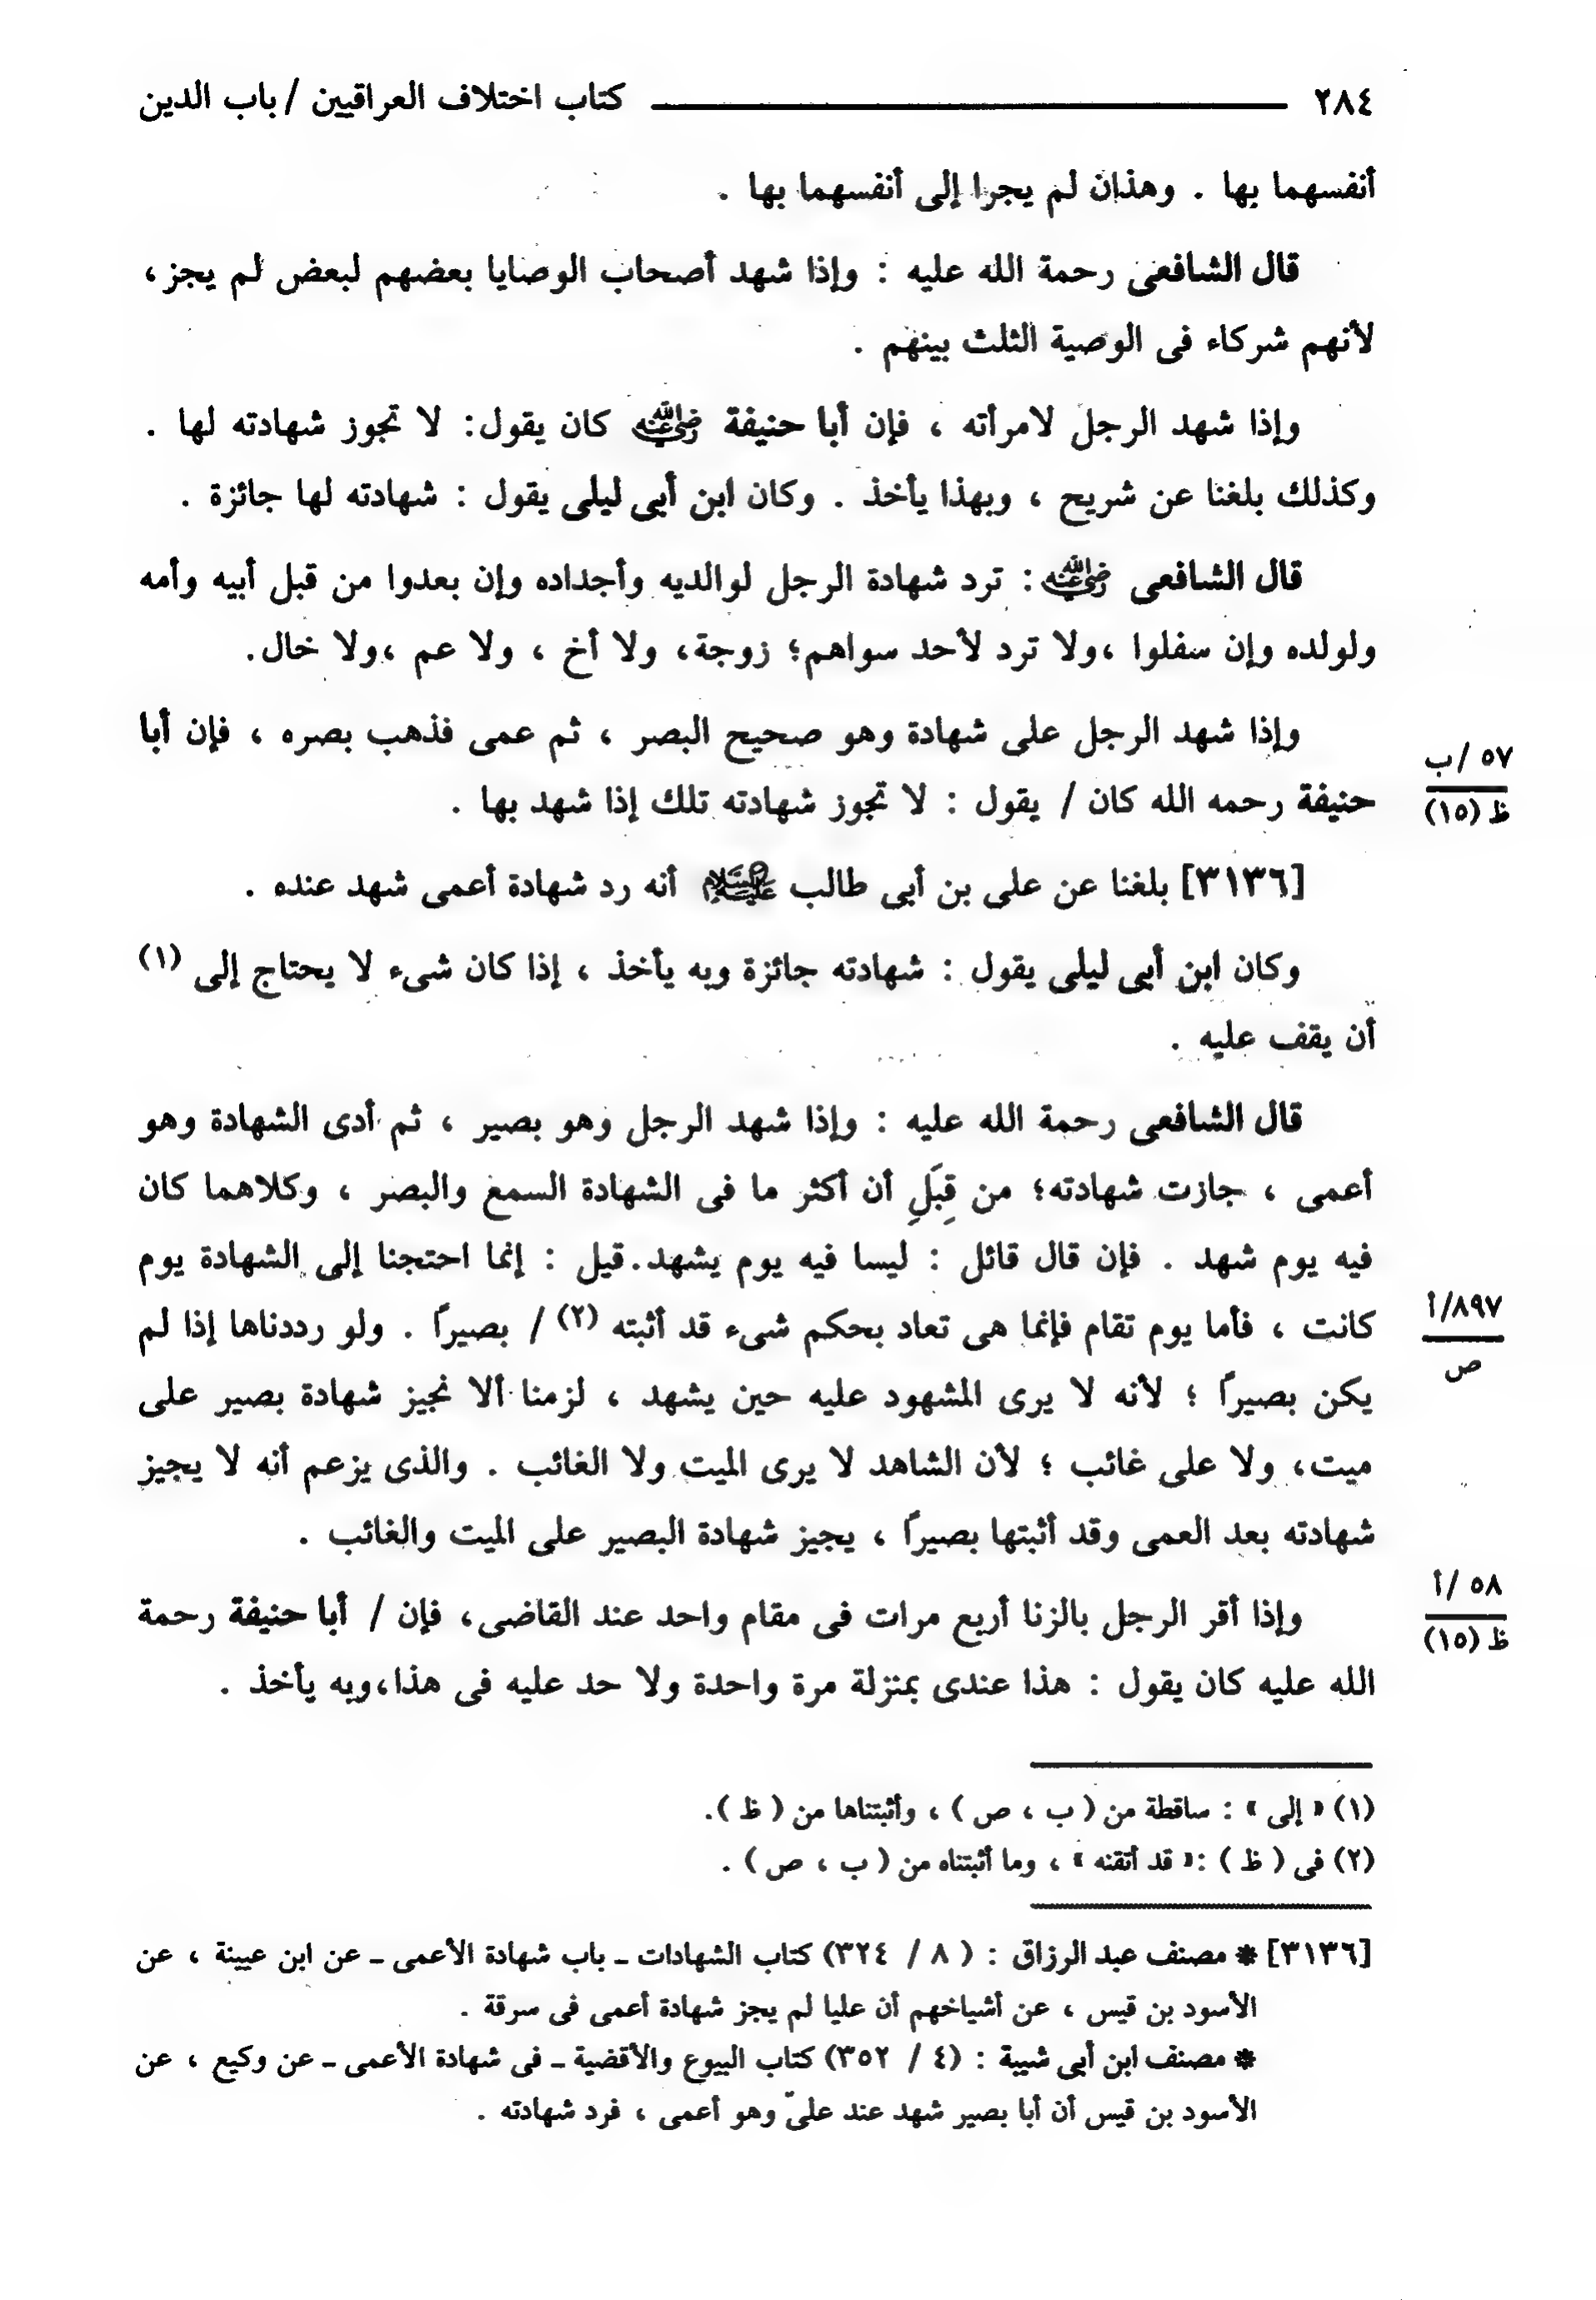 ٢٨٤ كتاب اختلاف العراقيين / باب الدين
أنفسهما بها . وهذان لم يجرا إلى أنفسهما بها .
قال الشافعى رحمة الله عليه : وإذا شهد أصحاب الوصايا بعضهم لبعض لم يجز ،
لأنهم شركاء فى الوصية الثلث بينهم .
وإذا شهد الرجل لامرأته ، فإن أبا حنيفة رضي الله عنه كان يقول: لا تجوز شهادته لها .
وكذلك بلغنا عن شريح ، وبهذا يأخذ . وكان ابن أبى ليلى يقول : شهادته لها جائزة .
قال الشافعى رضي الله عنه : ترد شهادة الرجل لوالديه وأجداده وإن بعدوا من قبل أبيه وأمه
ولولده وإن سفلوا ،ولا ترد لأحد سواهم؛ زوجة، ولا أخ ، ولا عم ،ولا خال.
وإذا شهد الرجل على شهادة وهو صحيح البصر ، ثم عمى فذهب بصره ، فإن أبا
٥٧ /ب
حنيفة رحمه الله كان / يقول : لا تجوز شهادته تلك إذا شهد بها .
ظ (١٥)
[٣١٣٦] بلغنا عن على بن أبى طالب عليه السلام أنه رد شهادة أعمى شهد عنده .
وكان ابن أبى ليلى يقول : شهادته جائزة وبه يأخذ ، إذا كان شىء لا يحتاج إلى (١)
أن يقف عليه .
قال الشافعى رحمة الله عليه : وإذا شهد الرجل وهو بصير ، ثم أدى الشهادة وهو
أعمى ، جازت شهادته؛ من قِبَلِ أن أكثر ما فى الشهادة السمع والبصر ، وكلاهما كان
فيه يوم شهد . فإن قال قائل : ليسا فيه يوم يشهد.قيل : إنما احتجنا إلى الشهادة يوم
٨٩٧/أ
كانت ، فأما يوم تقام فإنما هى تعاد بحكم شىء قد أثبته (٢) / بصيرًا . ولو رددناها إذا لم
ص
يكن بصيرًا ؛ لأنه لا يرى المشهود عليه حين يشهد ، لزمنا ألا نجيز شهادة بصير على
ميت، ولا على غائب ؛ لأن الشاهد لا يرى الميت ولا الغائب . والذى يزعم أنه لا يجيز
شهادته بعد العمى وقد أثبتها بصيرًا ، يجيز شهادة البصير على الميت والغائب .
٥٨ /أ
وإذا أقر الرجل بالزنا أربع مرات فى مقام واحد عند القاضى، فإن / أبا حنيفة رحمة
ظ (١٥)
الله عليه كان يقول : هذا عندى بمنزلة مرة واحدة ولا حد عليه فى هذا،وبه يأخذ .
(١) « إلى » : ساقطة من ( ب ، ص ) ، وأثبتناها من ( ظ ).
(٢) فى ( ظ ) :« قد أتقنه » ، وما أثبتناه من ( ب ، ص ) .
[٣١٣٦] * مصنف عبد الرزاق : ( ٨ / ٣٢٤) كتاب الشهادات ـ باب شهادة الأعمى ـ عن ابن عيينة ، عن
الأسود بن قيس ، عن أشياخهم أن عليا لم يجز شهادة أعمى فى سرقة .
* مصنف ابن أبى شيبة : (٤ / ٣٥٢) كتاب البيوع والأقضية ـ فى شهادة الأعمى ـ عن وكيع ، عن
الأسود بن قيس أن أبا بصير شهد عند علىّ وهو أعمى ، فرد شهادته .